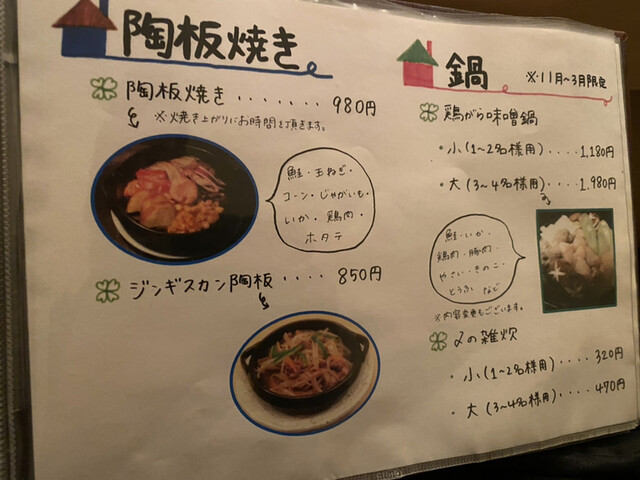 陶板焼き
陶板焼き ....... 980円
※焼き上がりにお時間を頂きます。
鮭・玉ねぎ・
コーン・じゃがいも・
いか・鶏肉・
ホタテ
ジンギスカン陶板 .... 850円
鍋 ※11月~3月限定
鶏がら味噌鍋
・小(1~2名様用) .... 1,180円
・大(3~4名様用) .... 1,980円
鮭・いか・
鶏肉・豚肉・
やさい・きのこ・
とうふ など
※内容変更もございます。
〆の雑炊
・小(1~2名様用) .... 320円
・大(3~4名様用) .... 470円